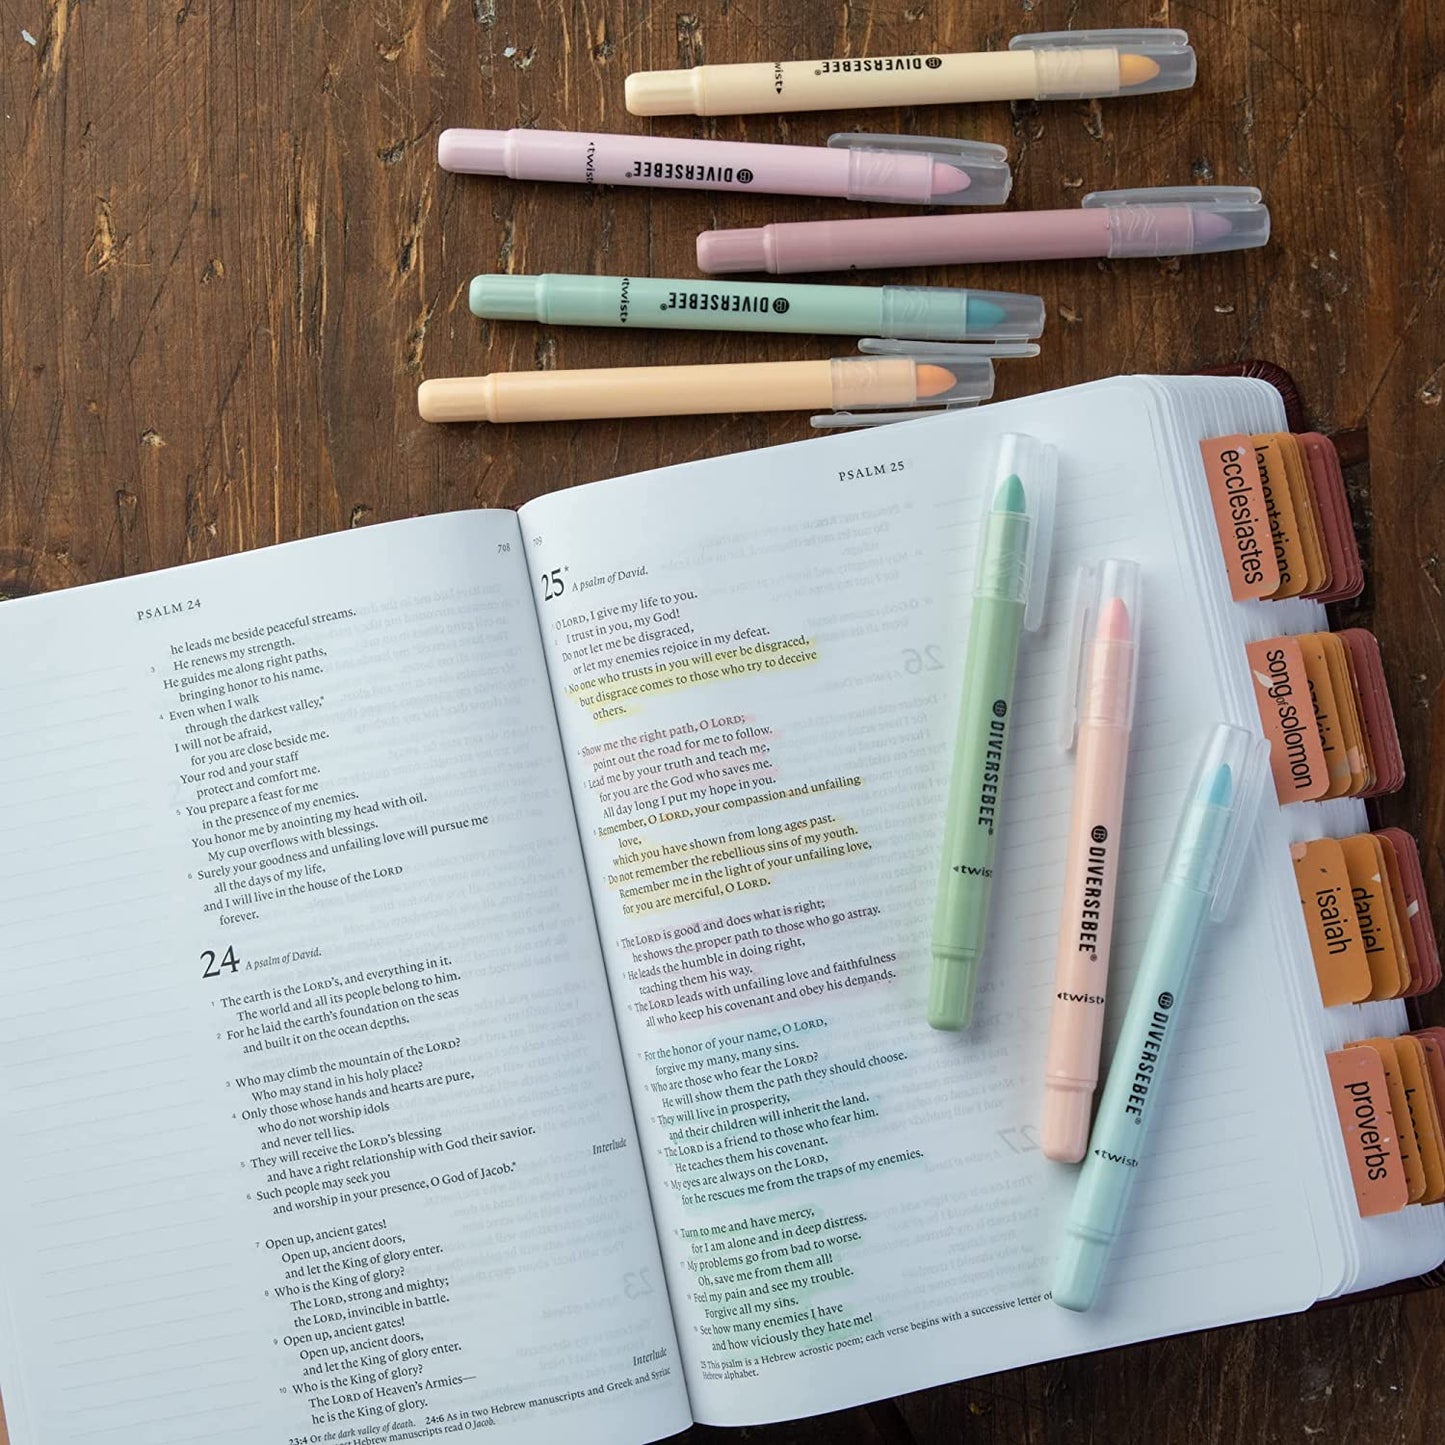 DIVERSEBEE®
twist
DIVERSEBEE®
twist
DIVERSEBEE®
twist
PSALM 24
708
he leads me beside peaceful streams.
3 He renews my strength.
He guides me along right paths,
bringing honor to his name.
4 Even when I walk
through the darkest valley,*
I will not be afraid,
for you are close beside me.
Your rod and your staff
protect and comfort me.
5 You prepare a feast for me
in the presence of my enemies.
You honor me by anointing my head with oil.
My cup overflows with blessings.
6 Surely your goodness and unfailing love will pursue me
all the days of my life,
and I will live in the house of the LORD
forever.
24 A psalm of David.
1 The earth is the LORD's, and everything in it.
The world and all its people belong to him.
2 For he laid the earth's foundation on the seas
and built it on the ocean depths.
3 Who may climb the mountain of the LORD?
Who may stand in his holy place?
4 Only those whose hands and hearts are pure,
who do not worship idols
and never tell lies.
5 They will receive the LORD's blessing
and have a right relationship with God their savior.
6 Such people may seek you
and worship in your presence, O God of Jacob.*
Interlude
7 Open up, ancient gates!
Open up, ancient doors,
and let the King of glory enter.
8 Who is the King of glory?
The LORD, strong and mighty;
the LORD, invincible in battle.
9 Open up, ancient gates!
Open up, ancient doors,
and let the King of glory enter.
10 Who is the King of glory?
The LORD of Heaven's Armies—
he is the King of glory.
Interlude
23:4 Or the dark valley of death. 24:6 As in two Hebrew manuscripts and Greek and Syriac
Hebrew manuscripts read O Jacob.
709
PSALM 25
25* A psalm of David.
1 O LORD, I give my life to you.
2 I trust in you, my God!
Do not let me be disgraced,
or let my enemies rejoice in my defeat.
3 No one who trusts in you will ever be disgraced,
but disgrace comes to those who try to deceive
others.
4 Show me the right path, O LORD;
point out the road for me to follow.
5 Lead me by your truth and teach me,
for you are the God who saves me.
All day long I put my hope in you.
6 Remember, O LORD, your compassion and unfailing
love,
which you have shown from long ages past.
7 Do not remember the rebellious sins of my youth.
Remember me in the light of your unfailing love,
for you are merciful, O LORD.
8 The LORD is good and does what is right;
he shows the proper path to those who go astray.
9 He leads the humble in doing right,
teaching them his way.
10 The LORD leads with unfailing love and faithfulness
all who keep his covenant and obey his demands.
11 For the honor of your name, O LORD,
forgive my many, many sins.
12 Who are those who fear the LORD?
He will show them the path they should choose.
13 They will live in prosperity,
and their children will inherit the land.
14 The LORD is a friend to those who fear him.
He teaches them his covenant.
15 My eyes are always on the LORD,
for he rescues me from the traps of my enemies.
16 Turn to me and have mercy,
for I am alone and in deep distress.
17 My problems go from bad to worse.
Oh, save me from them all!
18 Feel my pain and see my trouble.
Forgive all my sins.
19 See how many enemies I have
and how viciously they hate me!
25 This psalm is a Hebrew acrostic poem; each verse begins with a successive letter of
Hebrew alphabet.
DIVERSEBEE®
twist
DIVERSEBEE®
twist
DIVERSEBEE®
twist
ecclesiastes
lamentations
song of solomon
ezekiel
isaiah
daniel
proverbs